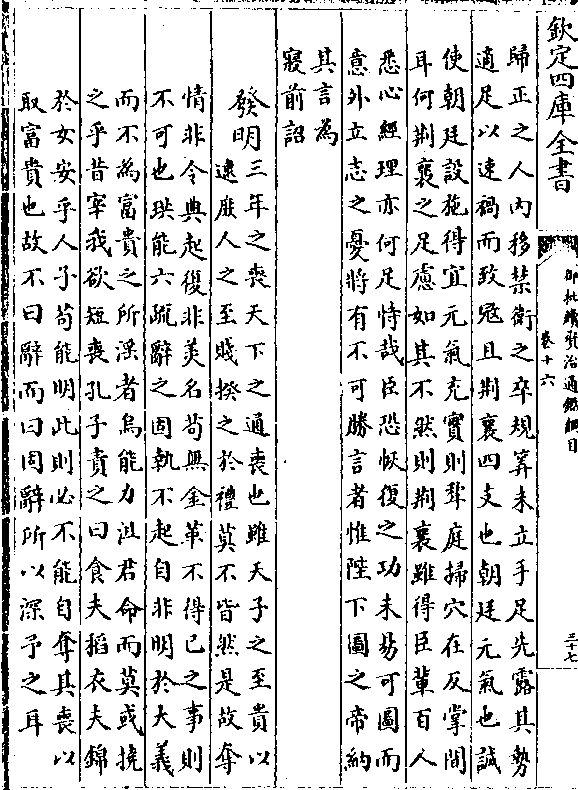 欽定四庫全書
御批續資治通鑑綱目
卷十六
三十七
歸正之人內移禁衛之卒規筭未立手足先露其勢
適足以速禍而致冦且荆襄四支也朝廷元氣也誠
使朝廷設施得宜元氣充實則犂庭掃穴在反掌間
耳何荆襄之足慮如其不然則荆襄雖得臣輩百人
悉心經理亦何足恃哉臣恐恢復之功未易可圖而
意外立志之憂將有不可勝言者惟陛下圖之帝納
其言為
寢前詔
發明三年之喪天下之通喪也雖天子之至貴以
逮庶人之至賤揆之於禮莫不皆然是故奪
情非令典起復非美名苟無金革不得已之事則
不可也珙能六疏辭之固執不起自非明於大義
而不為富貴之所淫者烏能力沮君命而莫或撓
之乎昔宰我欲短喪孔子責之曰食夫稻衣夫錦
於女安乎人子苟能明此則必不能自奪其喪以
取富貴也故不曰辭而曰固辭所以深予之耳